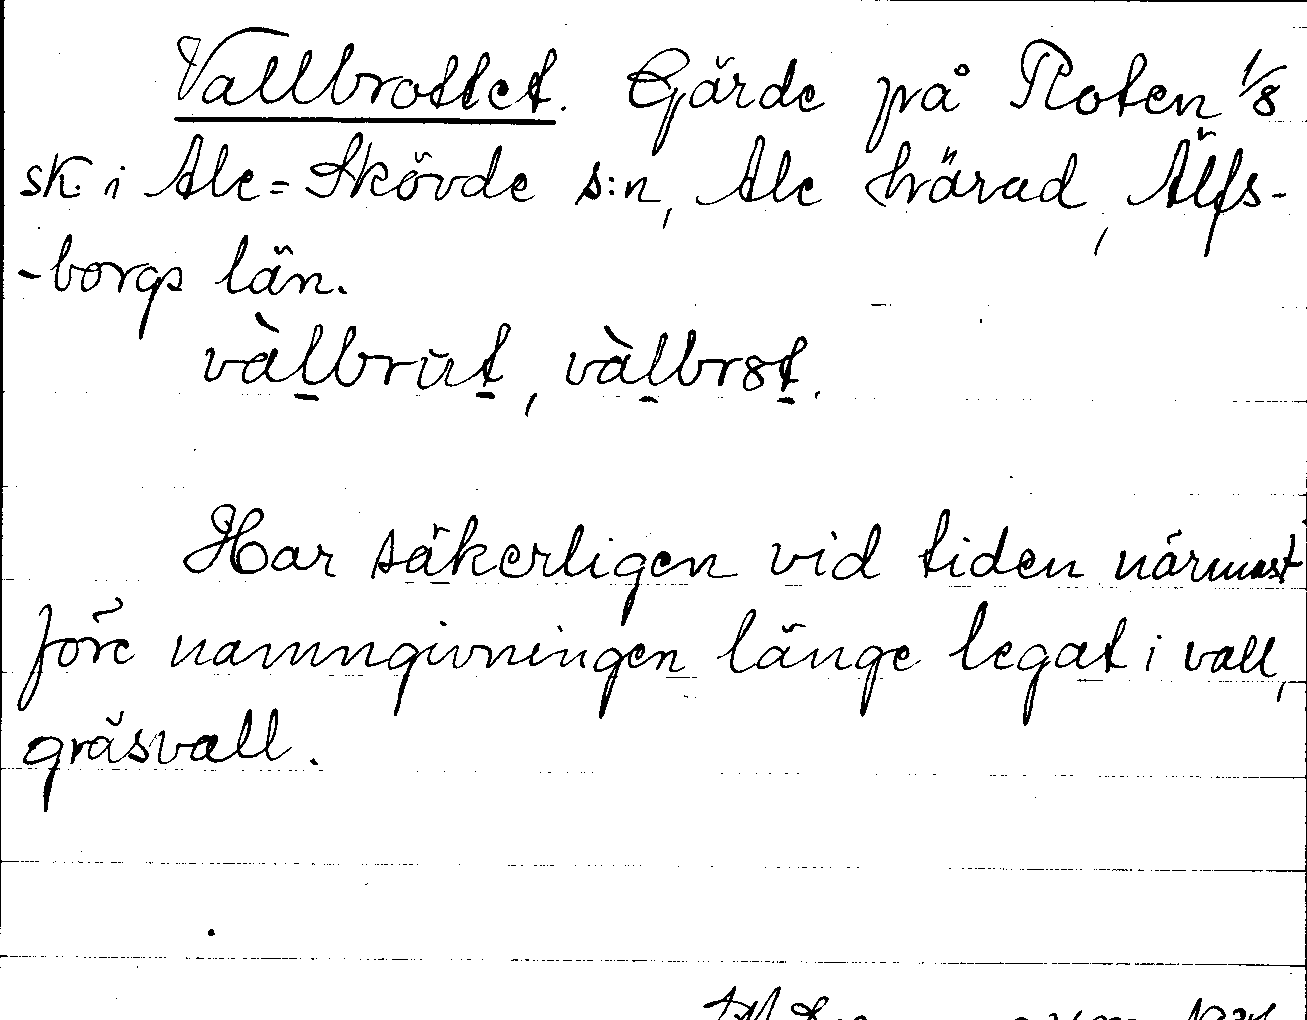 Vallbrottet. Gärde på Roten 1/8
sk. i Ale=Skövde s:n, Ale härad, Älfs-
-borgs län.
vàl̠brut̠, vàl̠br8t̠.
Har säkerligen vid tiden närmast
före namngivningen länge legat i vall,
gräsvall.